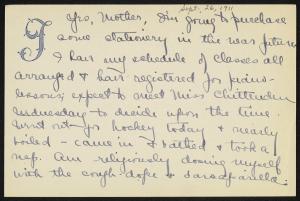 Sept. 26, 1911
Yes, Mother, I'm going to purchase
some stationery in the near future
I have my schedule of classes all
arranged & have registered for piano-
lessons; expect to meet Miss Chittenden
Wednesday to decide upon the time.
Went out for hockey today & nearly
boiled - came in & bathed & took a
nap. Am religiously dosing myself
with the cough-dope & sarsaparilla.